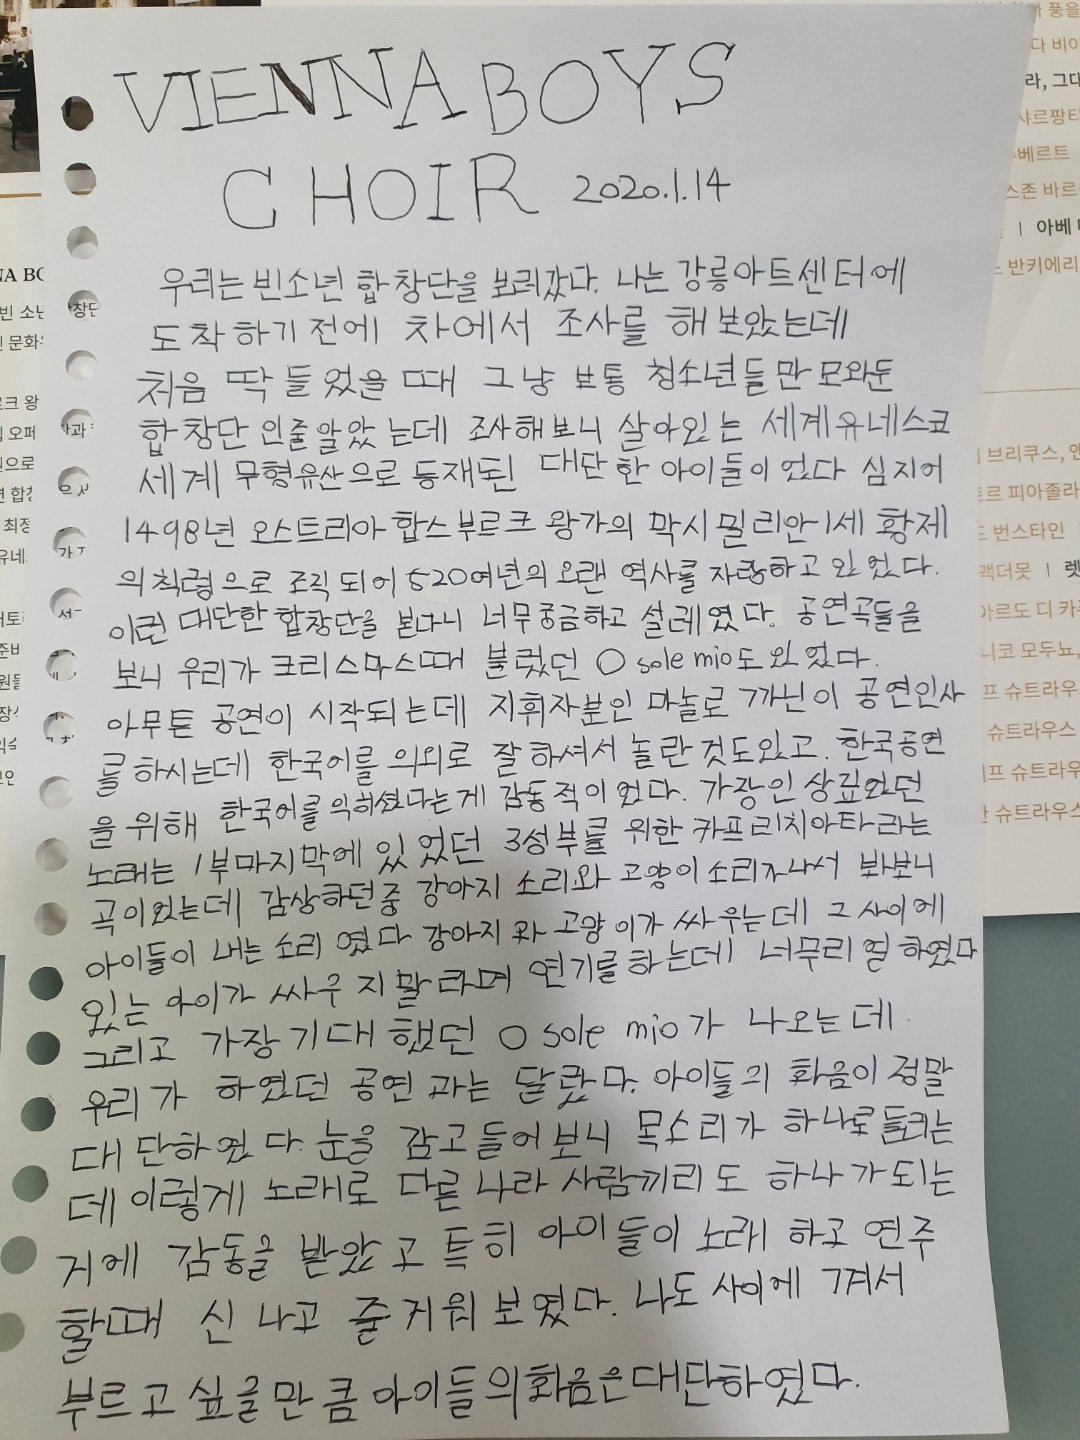 VIENNA BOYS
CHOIR 2020.1.14
우리는 빈소년 합창단을 보러갔다. 나는 강릉아트센터에
도착하기 전에 차에서 조사를 해보았는데
처음 딱 들었을 때 그냥 보통 청소년들만 모와둔
합창단 인줄알았는데 조사해보니 살아있는 세계유네스코
세계 무형유산으로 등재된 대단한 아이들이었다 심지어
1498년 오스트리아 합스부르크 왕가의 막시밀리안1세 황제
의 칙령으로 조직되어 520여년의 오랜 역사를 자랑하고 있었다.
이런 대단한 합창단을 본다니 너무궁금하고 설레였다. 공연곡들을
보니 우리가 크리스마스때 불렀던 O sole mio도 있었다.
아무튼 공연이 시작되는데 지휘자분인 마놀로 까닌이 공연인사
를 하시는데 한국어를 의외로 잘하셔서 놀란것도있고. 한국공연
을 위해 한국어를 익히셨다는게 감동적이었다. 가장인상깊었던
노래는 1부마지막에 있었던 3성부를 위한 카프리치아타라는
곡이었는데 감상하던중 강아지 소리와 고양이소리가나서 봐보니
아이들이 내는 소리 였다 강아지와 고양이가 싸우는데 그 사이에
있는 아이가 싸우지말라며 연기를하는데 너무리얼하였다
그리고 가장기대했던 O sole mio가 나오는데
우리가 하였던 공연과는 달랐다. 아이들의 화음이 정말
대단하였다. 눈을 감고들어보니 목소리가 하나로들리는
데 이렇게 노래로 다른 나라 사람끼리도 하나가되는
거에 감동을 받았고 특히 아이들이 노래하고 연주
할때 신나고 즐거워보였다. 나도 사이에 껴서
부르고 싶을만큼 아이들의화음은대단하였다.
NA BO
빈 소년
문화
창단
다 비아
라, 그대
샤르팡티
베르트
스존 바르
| 아베 
반키에리
브리쿠스, 앤
르 피아졸라
번스타인
맥더못 | 렛
아르도 디 카
니코 모두뇨,
프 슈트라우
슈트라우스
프 슈트라우
슈트라우스